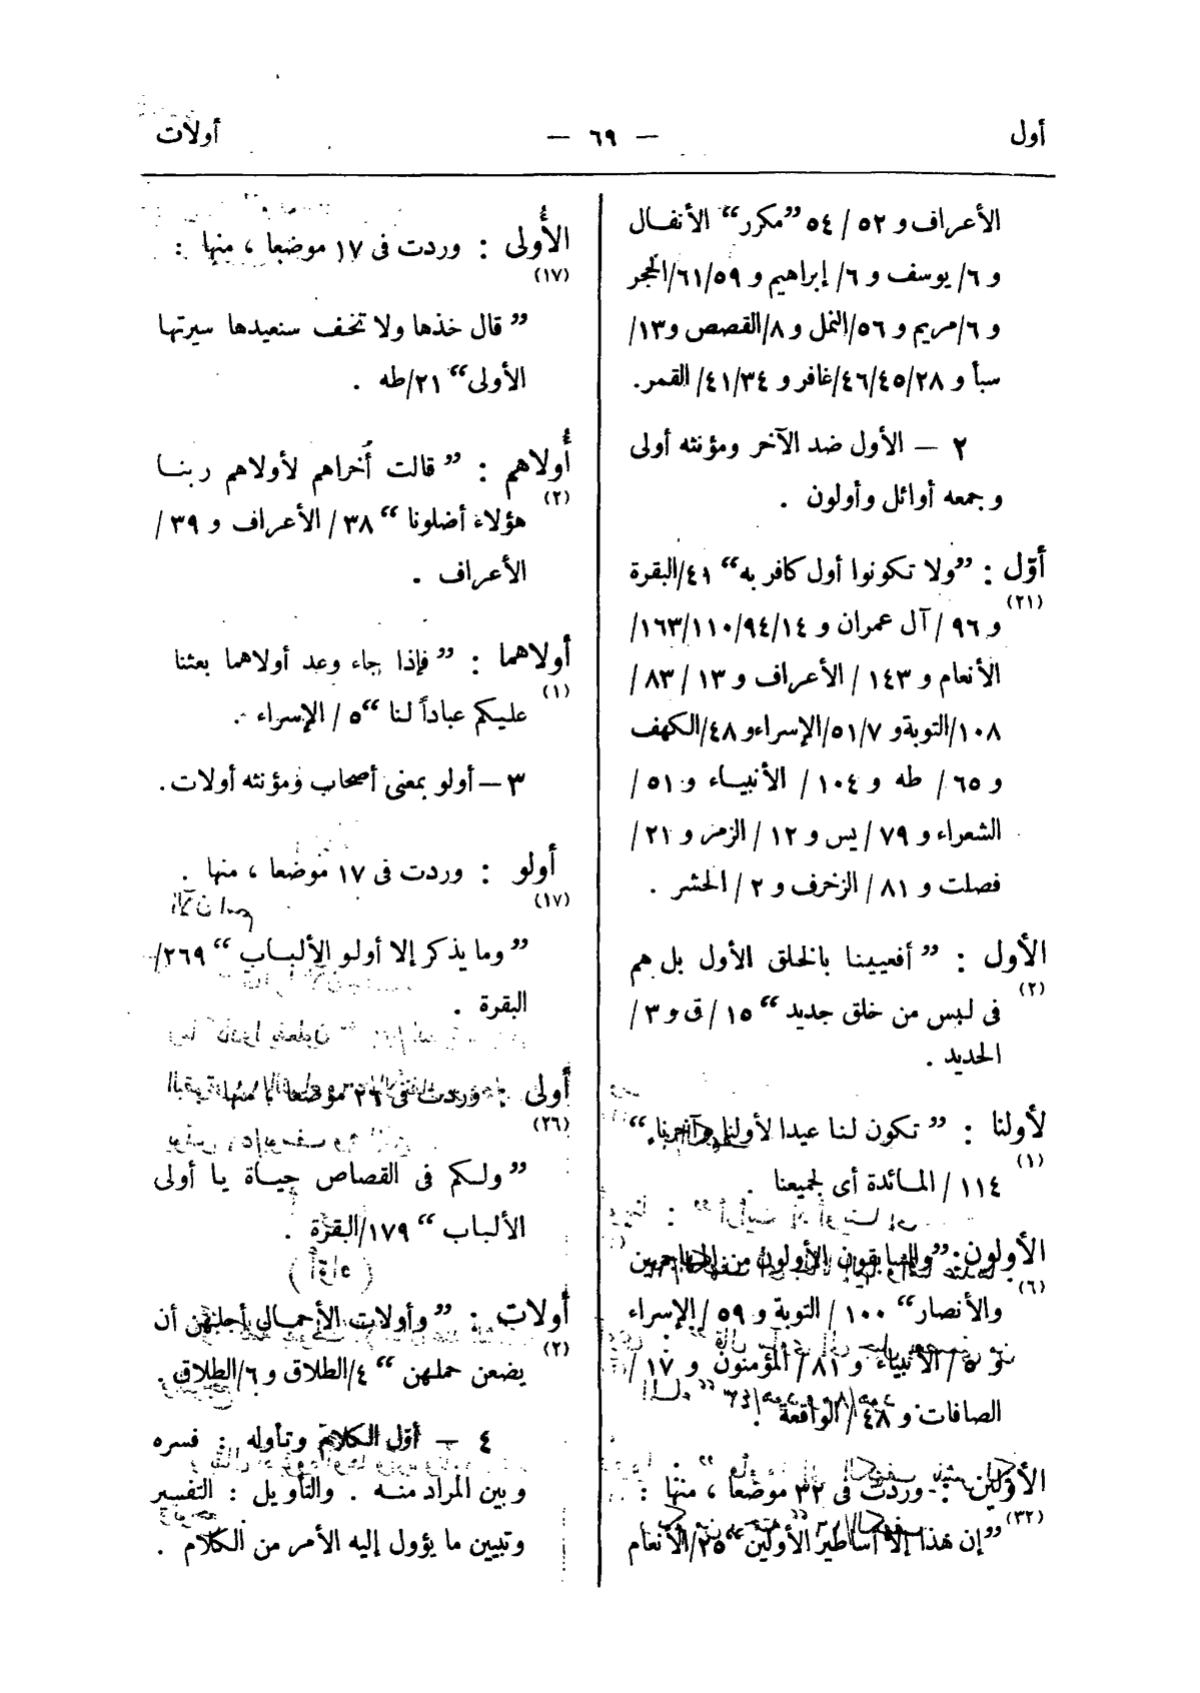 أول — ٦٩ — أولات
الأعراف و ٥٢ / ٥٤ ”مكرر“ الأنفـال
و ٦/ يوسف و ٦/ إبراهيم و ٦١/٥٩/الحجر
و ٦/مريم و ٥٦/النمل و ٨/القصص و١٣/
سبأ و ٤٦/٤٥/٢٨/غافر و ٤١/٣٤/ القمر.
٢ — الأول ضد الآخر ومؤنثه أولى
وجمعه أوائل وأولون .
أوّل : ”ولا تكونوا أول كافر به“ ٤١/البقرة
(٢١)
و ٩٦ / آل عمران و ١٦٣/١١٠/٩٤/١٤/
الأنعام و ١٤٣ / الأعراف و ١٣ / ٨٣ /
١٠٨/التوبة و ٥١/٧/الإسراء و ٤٨/الكهف
و ٦٥ / طه و ١٠٤ / الأنبيـاء و ٥١ /
الشعراء و ٧٩ / يس و ١٢ / الزمر و ٢١ /
فصلت و ٨١ / الزخرف و ٢ / الحشر .
الأول : ” أفعيينـا بالخلق الأول بل هم
(٢)
فى لبس من خلق جديد “ ١٥ / ق و ٣ /
الحديد .
لأولنا : ” تكون لنـا عيدا لأولنا وآخرنا“
(١)
١١٤ / المـائدة أى لجميعنا .
الأولون : ”والسابقون الأولون من المهاجرين
(٦)
والأنصار“ ١٠٠ / التوبة و ٥٩ / الإسراء
و ٥ / الأنبياء و ٨١ / المؤمنون و ١٧ /
الصافات و ٤٨ / الواقعة .
الأولين : وردت فى ٣٢ موضعا ، منها :
(٣٢)
”إن هذا إلا أساطير الأولين“ ٢٥/الأنعام
الأُولى : وردت فى ١٧ موضعا ، منها :
(١٧)
” قال خذها ولا تخف سنعيدها سيرتها
الأولى“ ٢١/طه .
أُولاهم : ” قالت أُخراهم لأولاهم ربنـا
(٢)
هؤلاء أضلونا “ ٣٨ / الأعراف و ٣٩ /
الأعراف .
أولاهما : ” فإذا جاء وعد أولاهما بعثنا
(١)
عليكم عباداً لنا “ ٥ / الإسراء .
٣ — أولو بمعنى أصحاب ومؤنثه أولات .
أولو : وردت فى ١٧ موضعا ، منها .
(١٧)
” وما يذكر إلا أولـو الألبـاب “ ٢٦٩/
البقرة .
أولى : وردت فى ٢٦ موضعا ، منها
(٢٦)
” ولـكم فى القصاص حيـاة يا أولى
الألباب “ ١٧٩/البقرة .
أولات : ” وأولات الأحمـال أجلهن أن
(٢)
يضعن حملهن “ ٤/الطلاق و ٦/الطلاق .
٤ — أوّل الكلام وتأوله : فسره
وبين المراد منـه . والتأويل : التفسير
وتبيين ما يؤول إليه الأمر من الكلام .